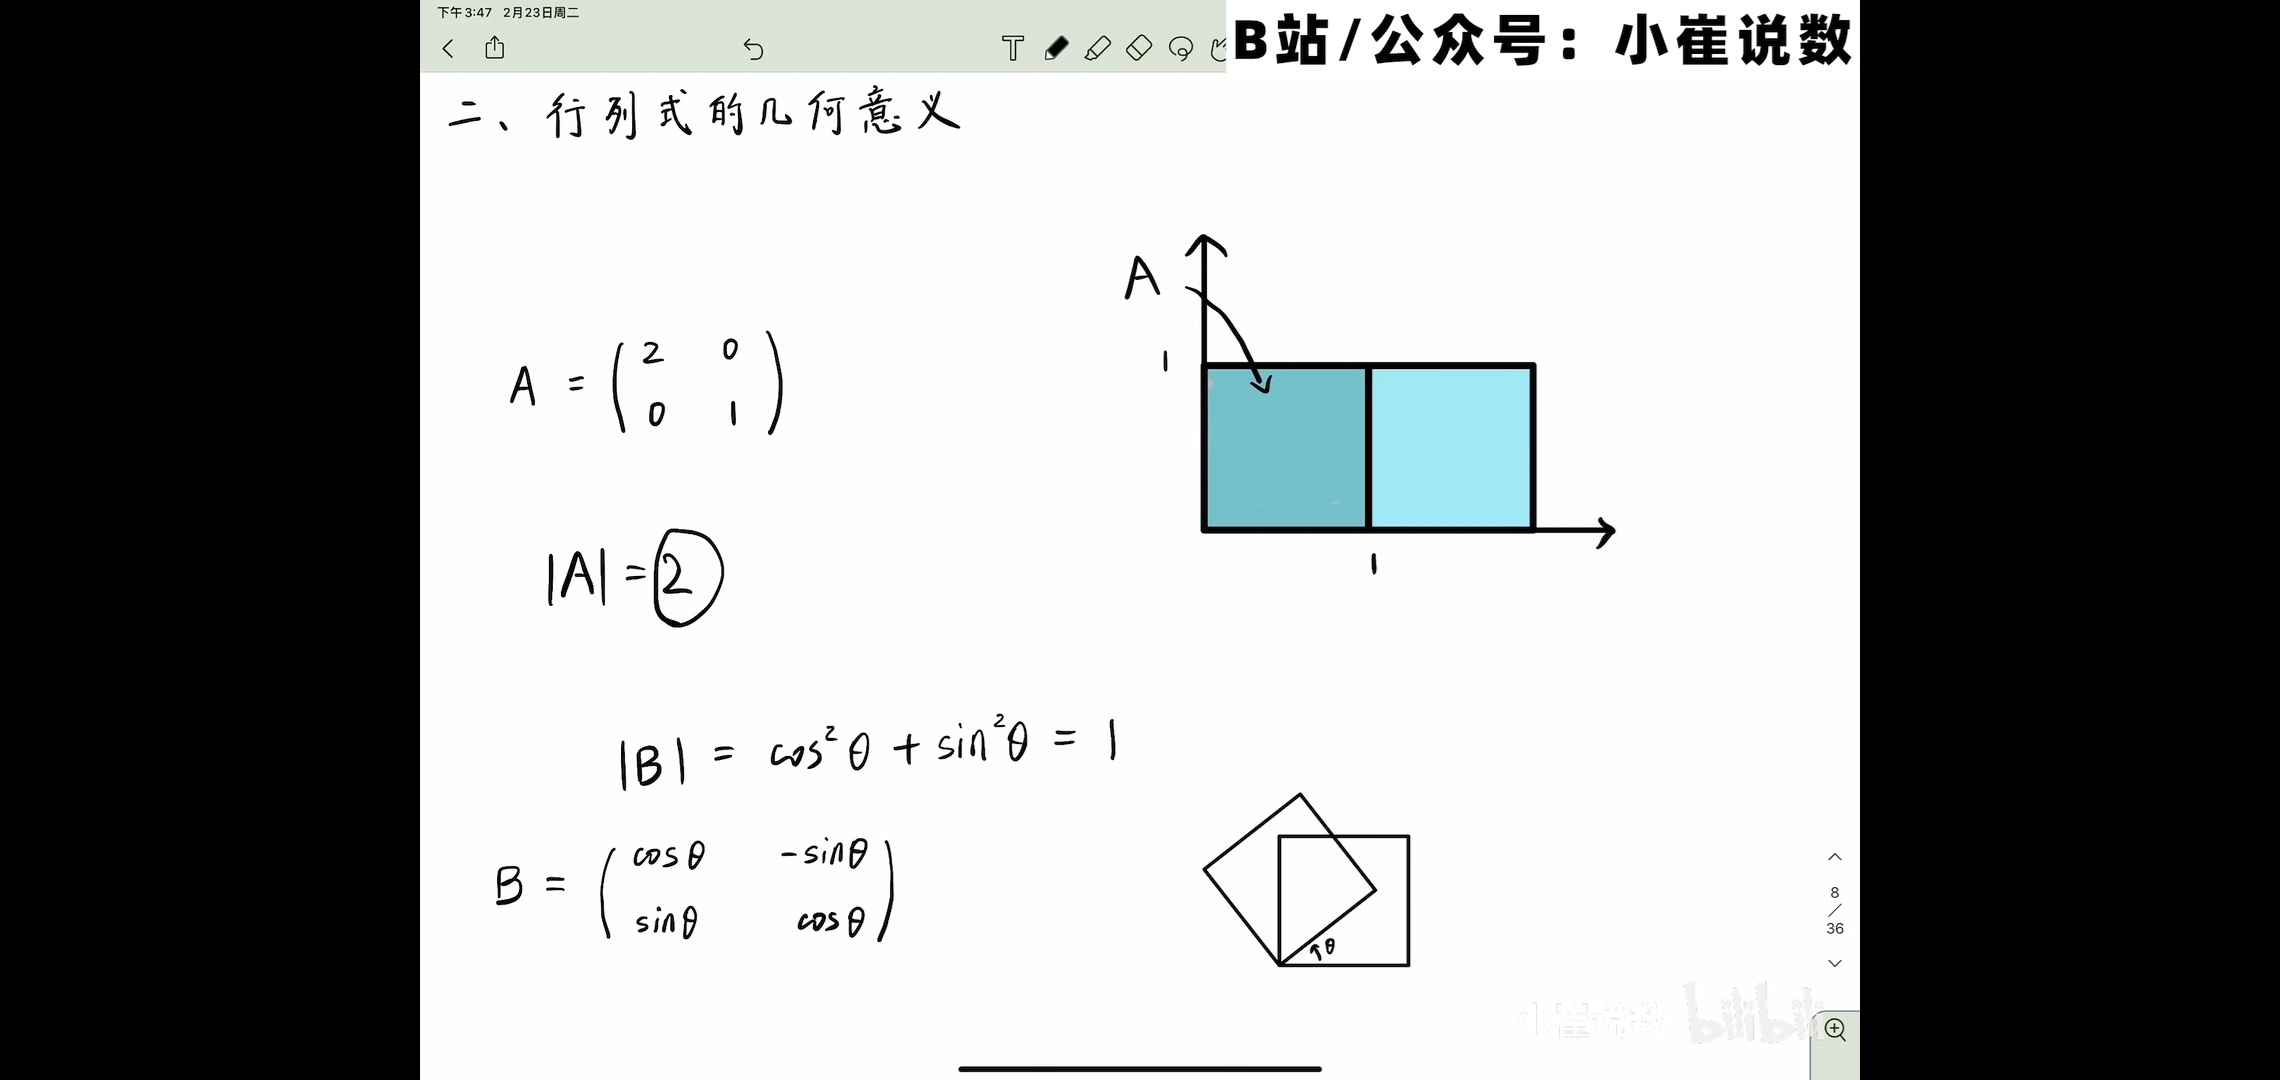 下午3:47 2月23日周二
B站/公众号：小崔说数
二、行列式的几何意义
A
1
A = ( 2 0
0 1 )
1
|A| = 2
|B| = cos²θ + sin²θ = 1
B = ( cosθ -sinθ
sinθ cosθ )
θ
8
/
36
小崔说数 bilibili